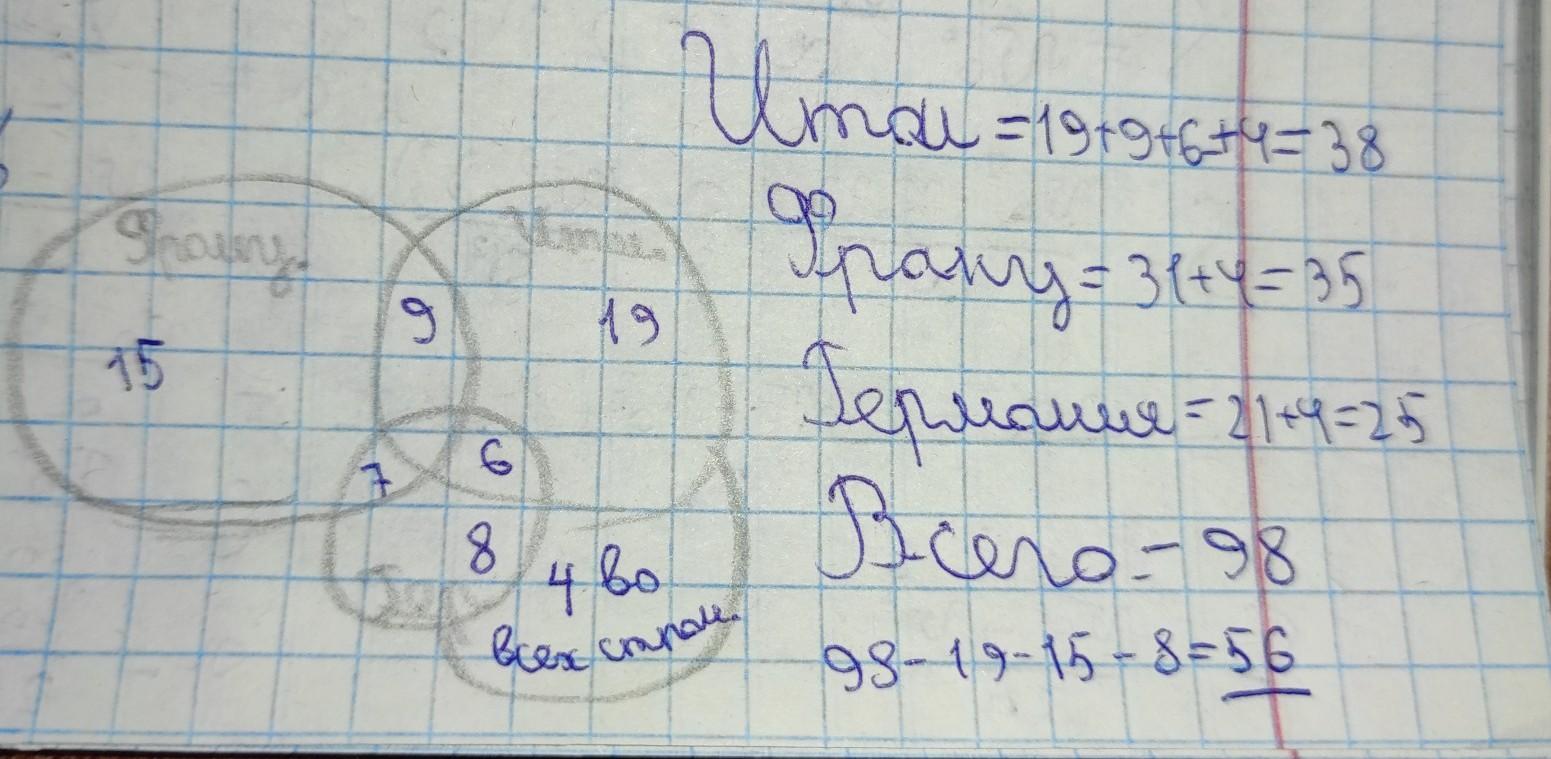 Итал = 19+9+6+4= 38
Франц = 31+4= 35
Германия = 21+4=25
Всего = 98
98 - 19 - 15 - 8 = 56
Франц.
Итал.
9
19
15
7
6
8
4 во
всех стран.